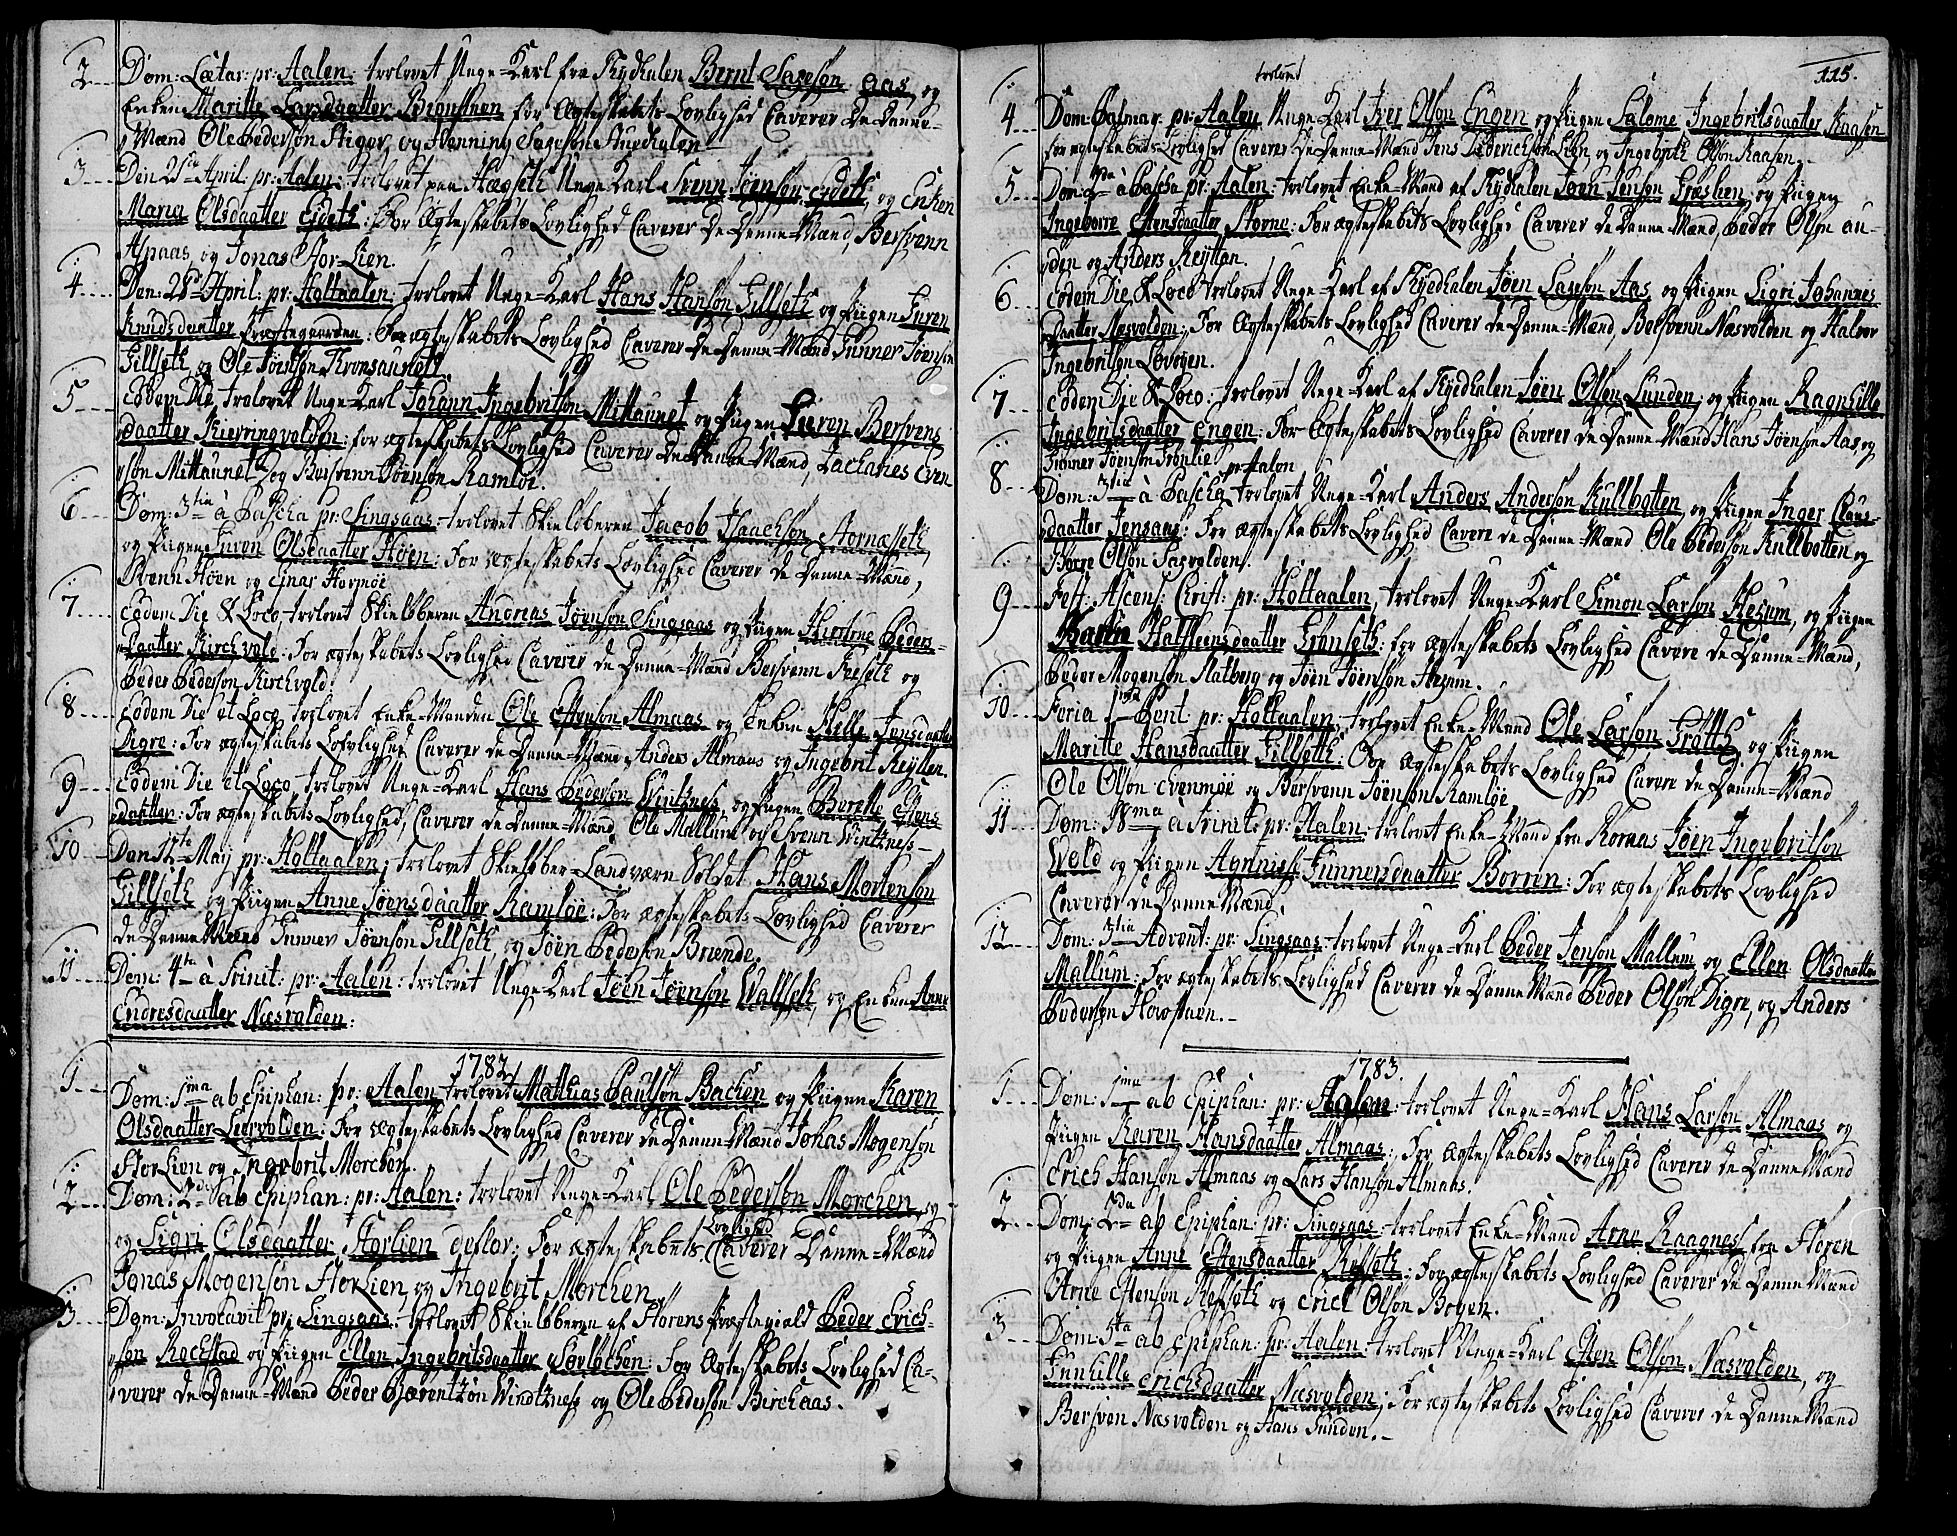 2 Dom: Lætar: pr: Aalen: trolovet Unge-Karl fra Tydhalen Bernt Saxeson Aas, og
Enken Maritte Larsdaatter for Ægteskabets Lovlighed Caverer De Danne-
Mænd Ole Pederson Stiger, og Henning Saxeson
3 Den April pr: Aalen: trolovet Unge-Karl Svenn Jøenson Eideth, og Enken
Maria Olsdaatter Eideth: For Ægteskabets Lovlighed Caverer De Danne-Mænd, Bersvenn
Aspaas, og Jonas Stor-Lien.
4 Den: 28de April: pr: Holtaalen, trolovet Unge-Karl Hans Hanson Gillseth og Pigen Guren
Knudsdaatter Præstegaarden: For ægteskabets Lovlighed Caverer De Danne-Mænd Gunner Jøenson
Gillseth, og Ole Jøenson
5 Eodem Die trolovet Unge-Karl Johann Ingebritson Mittaunet og Pigen Guren Bersvens
daatter Kierringvolden: for ægteskabets Lovlighed Caverer De Danne-Mænd, Zacharies Even
son Mittaunet og Bersvenn Jøenson Ramløe.
6 Dom: 3tia à Pascha pr: Singsaas: trolovet Skieløberen Jacob Isachson Stornæsseth
og Pigen Guren Olsdaatter Høen: For ægteskabets Lovlighed Caverer De Danne-Mænd,
Svenn Høen og Einar Hormoe
7 Eodem Die & Loco, trolovet Skieløberen Andreas Jøenson Singsaas og Pigen Kirstine Peders-
Daatter Kirchvold: For ægteskabets Lovlighed Caverer De Danne-Mænd Bersvenn og
Peder Pederson Kirchvold.
8 Eodem Die et Loco trolovet Enke-Manden Ole Estenson Almaas og Enken Jensdaatter
Digre: For ægteskabets Lovlighed Caverer De Danne-Mænd Anders Almaas og Ingebrit Reytten.
9 Eodem Die et Loco, trolovet Unge-Karl Hans Pederson Wintznes og Pigen Berette Estens
daatter: For ægteskabets Lovlighed, Caverer De Danne-Mænd, Ole Mallum og Svenn Wintznes—
10 Den 12te Maij pr: Holtaalen; trolovet Skieløber-Landværn-Soldat Hans Mortenson
Gillseth og Pigen Anne Jøensdaatter Ramløe: For ægteskabets Lovlighed Caverer
de Danne Mænd Gunner Jøenson Gillseth, og Jøen Pederson Brænde.
11 Dom: 4te à Trinit: pr: Aalen: trolovet Unge-Karl Jøen Jøenson Wallseth, og Enken Anne
Endresdaatter Næsvolden:
1782.
1 Dom: 1ma ab Epiphan: pr: Aalen trolovet Mathias Paulson Bachen og Pigen Karen
Olsdaatter Lervolden: For ægteskabets Lovlighed Caverer De Danne-Mænd Johas Mogenson
Stor Lien og Ingebrit Morchen.
2 Dom: 2da ab Epiphan: pr: Aalen: trolovet Unge-Karl Ole Pederson Morchen, og
og Sigri Olsdaatter Storlien deflor: For ægteskabets Lovlighed Caverer Danne-Mænd
Jonas Mogenson Storlien, og Ingebrit Morchen.
3 Dom: Invocavit pr: Singsaas: trolovet Skieløberen af Storens Præstegield Peder Erich-
son Rochstad og Pigen Ellen Ingebritsdaatter Sørløchen: For ægteskabets Lovlighed Ca-
verer De Danne-Mænd Peder Bærentzøn Windtznes og Ole Pederson Birchaas.
115.
trolovet
4 Dom: Palmar. pr: Aalen, Unge-Karl Iver Olson Engen og Pigen Salome Ingebritsdaatter Kaasen
For ægteskabets Lovlighed Caverer De Danne-Mænd Jens Diderichson Lien og Ingebrith Olson Kaasen.
5 Dom: 2da à Pascha pr: Aalen: trolovet Enke-Mand af Tydhalen Jøen Jenson Græslien, og Pigen
Ingeborre Estensdaatter Storne: For ægteskabets Lovlighed Caverer De Danne-Mænd, Peder Olson au-
den og Anders Reyttan.
6 Eodem Die & Loco trolovet Unge-Karl af Tydhalen Jøen Saxeson Aas og Pigen Sigri Johannes
Daatter Næsvolden: For Ægteskabets Lovlighed Caverer De Danne-Mænd, Bersvenn Næsvolden og Halvor
Ingebritson Løvøyen.
7 Eodem Die & Loco: trolovet Unge-Karl af Tydhalen Jøen Olson Lunden, og Pigen Ragnille
Ingebritsdaatter Engen: For ægteskabets Lovlighed Caverer De Danne-Mænd Hans Jøenson Aas, og
Gunner Jøenson Grønlie.
8 Dom: 3tia à Pascha pr Aalen trolovet Unge-Karl Anders Anderson Kullbotten og Pigen Inger Claus-
daatter Jensaas: For ægteskabets Lovlighed Caverer De Danne-Mænd Ole Pederson Kullbotten og
Borre Olson Gaasvolden.
9 Fest: Ascens: Christ: pr: Holtaalen, trolovet Unge-Karl Simon Larson Hegum, og Pigen
Karen Halsteensdaatter Grønseth: for ægteskabets Lovlighed Caverer De Danne-Mænd,
Peder Mogenson Slatberg og Jøen Jøenson Hegum.
10 Feria 1ma Pent. pr: Holtaalen, trolovet Enke-Mand Ole Larson Grøtte, og Pigen
Maritte Hansdaatter Gillseth: For ægteskabets Lovlighed Caverer De Danne-Mænd
Ole Olson Evenmøe og Bersvenn Jøenson Ramløe.
11 Dom: 18ma à Trinit: pr: Aalen: trolovet Enke-Mand fra Roraas Jøen Ingebritson
Wold og Pigen Agnnis Gunnersdaatter Borren: For ægteskabets Lovlighed
Caverer De Danne Mænd.
12 Dom: 3tia Advent: pr: Singsaas: trolovet Unge-Karl Peder Jenson Mallum og Ellen Olsdaatter
Mallum: For ægteskabets Lovlighed Caverer De Danne Mænd Peder Olson Digre, og Anders
Pederson Howstuen.—
1783.
1 Dom: 1ma ab Epiphan: pr: Aalen: trolovet Unge-Karl Hans Larson Almaas og
Pigen Karen Hansdaatter Almaas: For ægteskabets Lovlighed Caverer De Danne Mænd
Erich Hanson Almaas og Lars Hanson Almaas.
2 Dom: 2da ab Epiphan: pr: Singsaas: trolovet Enke-Mand Arne Kaagnes fra Storen
og Pigen Anne Estensdaatter Rofseth: For ægteskabets Lovlighed Caverer De Danne Mænd
Arne Estenson Rofseth og Erich Olson Bogen.
3 Dom: 5ta ab Epiphan: pr: Aalen: trolovet Unge-Karl Esten Olson Næsvolden, og
Gunnille Erichsdaatter Næsvolden: For ægteskabets Lovlighed Caverer De Danne Mænd
Bersven Næsvolden og Hans Gunden.—